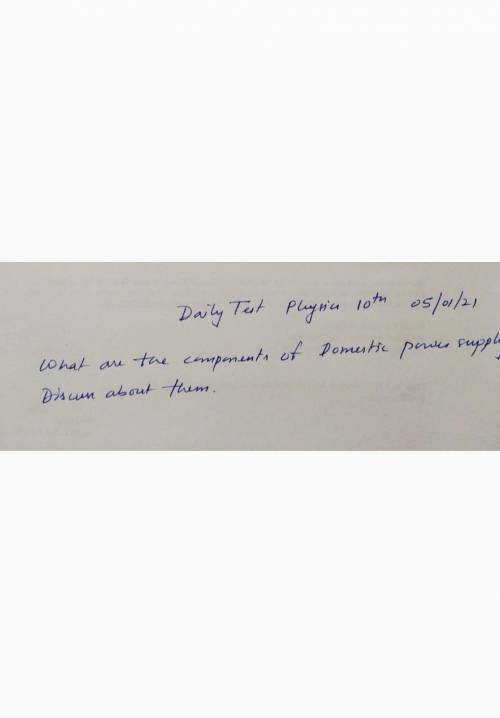 Daily Test Physics 10th 05/01/21
What are the components of Domestic power supply
Discuss about them.